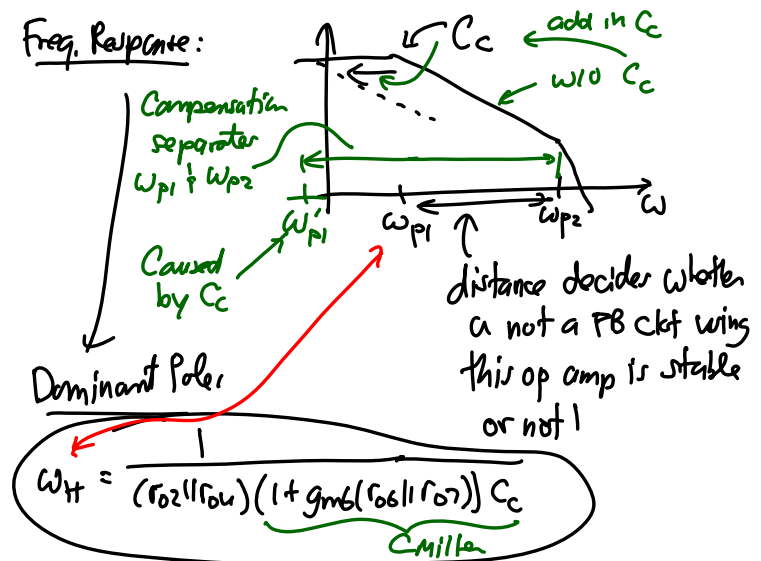 Freq. Response:
Cc
add in Cc
w/o Cc
Compensation
separates
ωp1 & ωp2
ω'p1
ωp1
ωp2
ω
Caused
by Cc
distance decides whether
a not a FB ckt using
this op amp is stable
or not!
Dominant Pole:
ωH = 1 / (ro2||ro4)(1+gm6(ro6||ro7)) Cc
CMiller